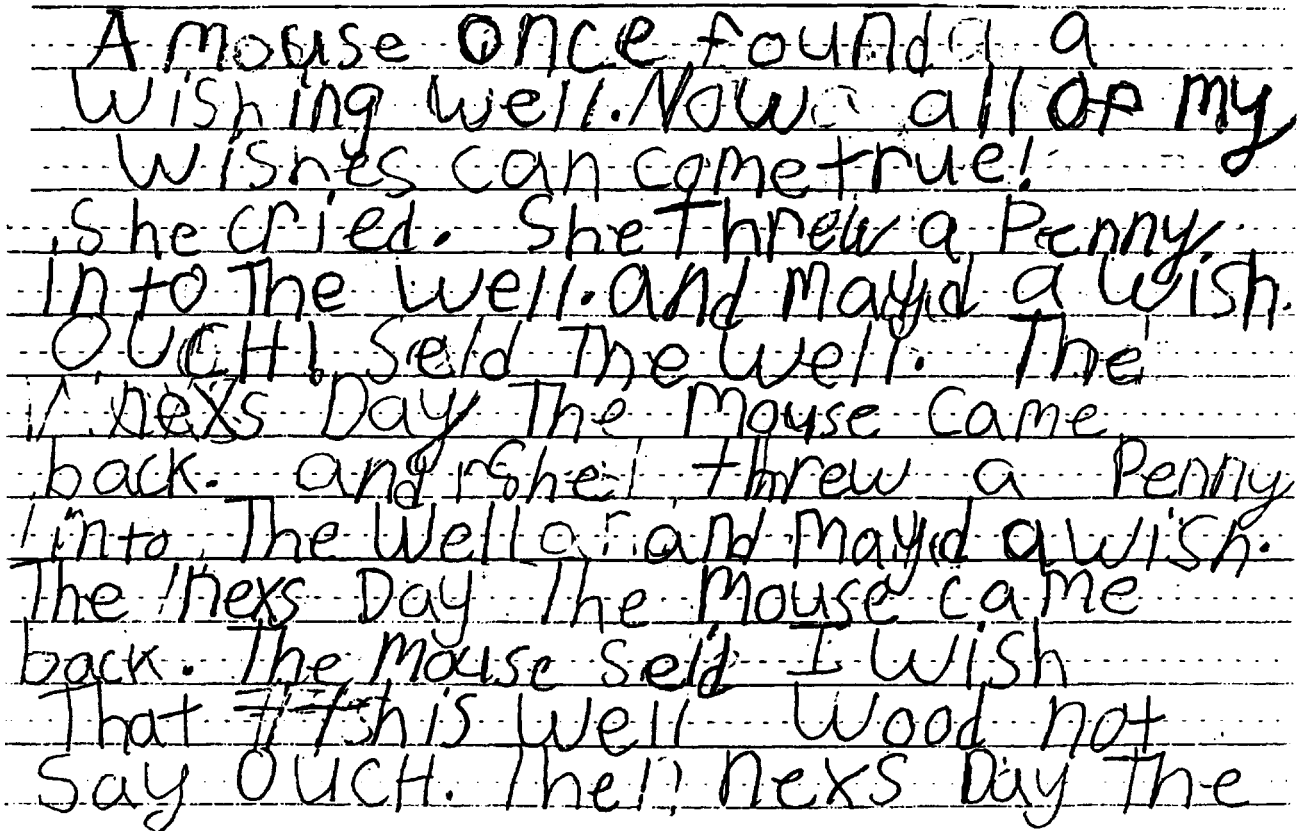 A mouse once found a
Wishing well. Now all of my
wishes can come true!
She cried. She Threw a Penny
Into The well. and mayd a wish.
OUCH! Seld The well. The
nexs Day The Mouse Came
back. and She threw a Penny
into The Well and mayd a wish.
The nexs Day The Mouse came
back. The Mouse seld I wish
That This well Wood not
Say OUCH. The nexs Day The